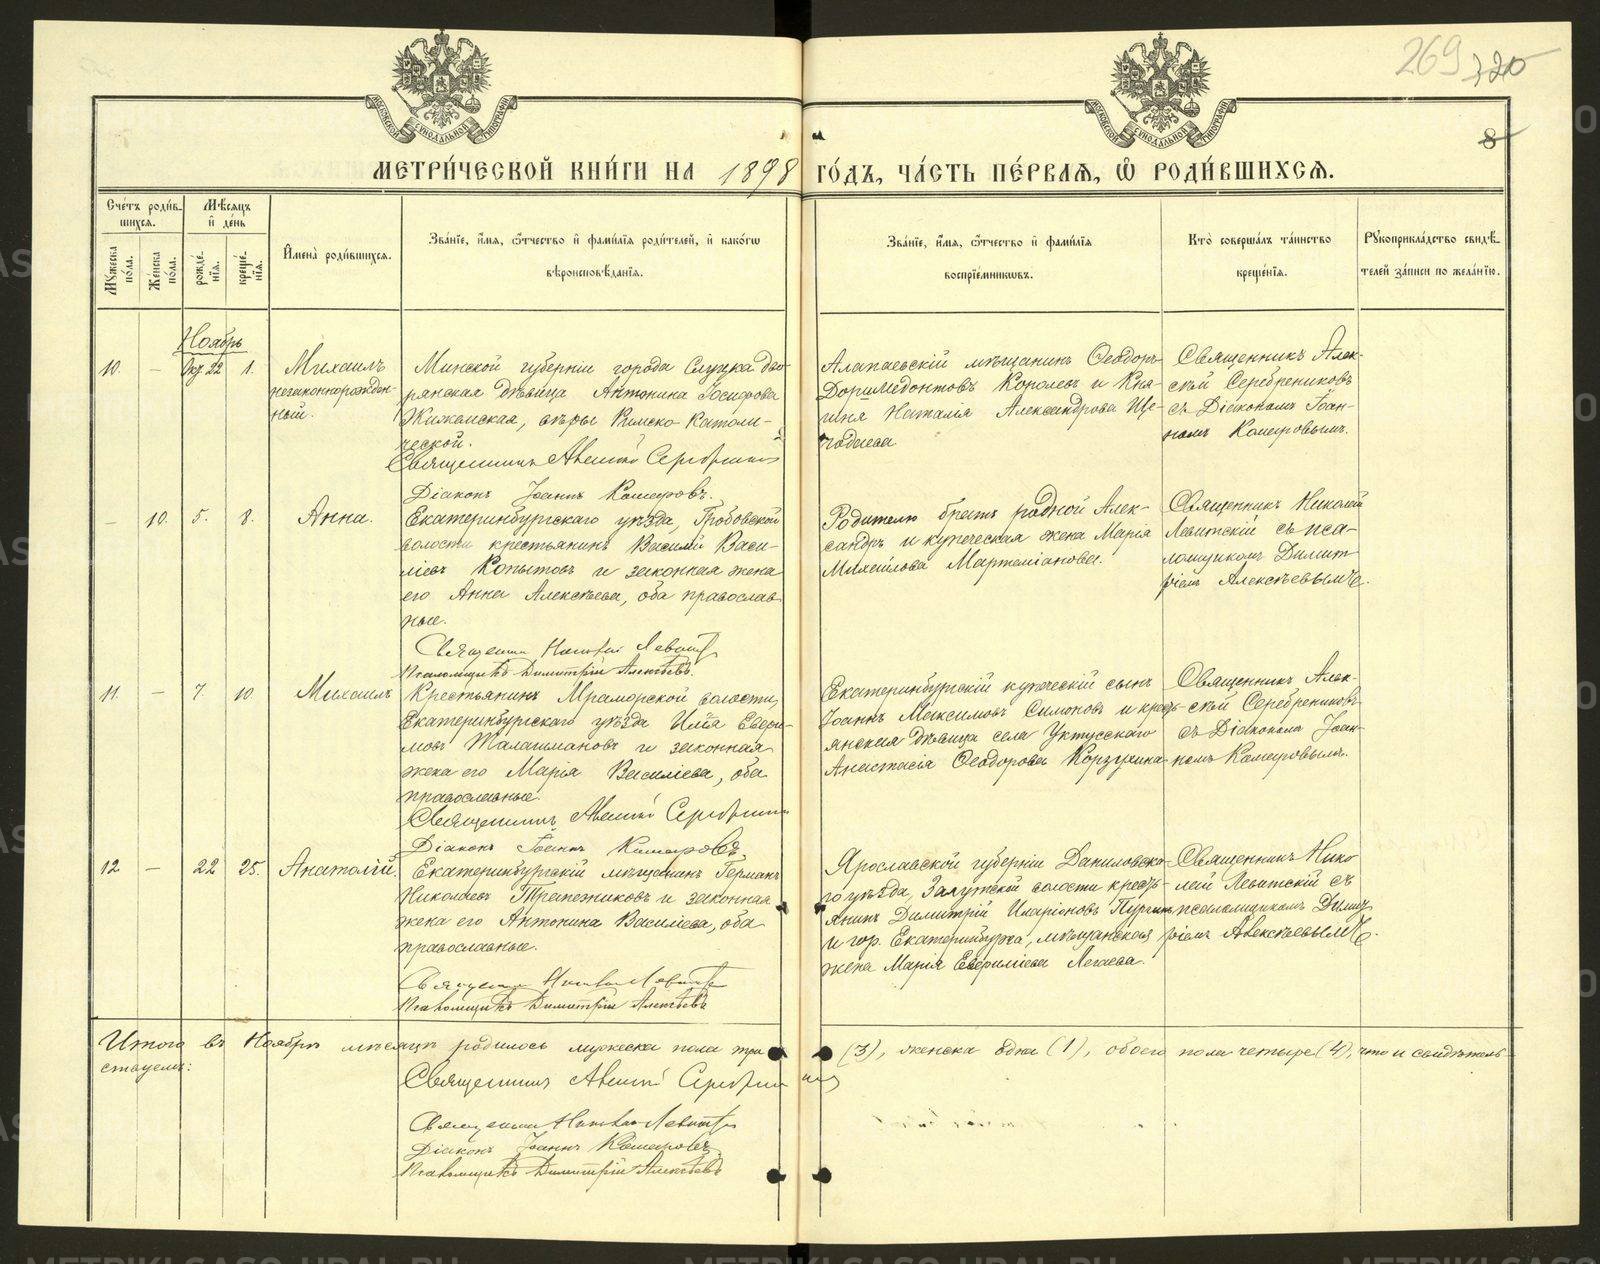 269 320
8
МОСКОВСКОЙ СУНОДАЛЬНОЙ ТИПОГРАФІИ
МОСКОВСКОЙ СУНОДАЛЬНОЙ ТИПОГРАФІИ
МЕТРИ́ЧЕСКОЙ КНИ́ГИ НА 1898 ГО́ДЪ, ЧА́СТЬ ПЕ́РВАЯ, Ѽ РОДИ́ВШИХСЯ.
Сче́тъ роди́в-
шихся.
Мѣсяцъ
и де́нь
Мꙋжеска по́ла.
Же́нска по́ла.
рожде́нїѧ.
креще́нїѧ.
Имена̀ роди́вшихся.
Зва́нїе, и́мя, ѻ҆́тчество и фами́лїѧ роди́телей, и како́гѡ
вѣроисповѣ́данїѧ.
Зва́нїе, и́мя, ѻ҆́тчество и фами́лїѧ
воспрїе́мникѡвъ.
Кто̀ соверша́лъ та́инство
креще́нїѧ.
Рꙋкоприкла́дство свидѣ́-
телей за́писи по жела́нїю.
Ноябрь
10. — Окт. 22 1.
Михаилъ
незаконнорожден-
ный.
Минской губерніи города Слуцка дво-
рянская дѣвица Антонина Іосифова
Жижемская, вѣры Римско-Католи-
ческой.
Священникъ Алексій Серебрениковъ
Діаконъ Іоаннъ Комаровъ.
Алапаевскій мѣщанинъ Ѳеодоръ
Доримедонтовъ Королевъ и Кня-
гиня Наталія Александрова Ще-
Священникъ Алек-
сѣй Серебрениковъ
съ Діакономъ Іоан-
номъ Комаровымъ.
— 10. 5. 8.
Анна.
Екатеринбургскаго уѣзда, Гробовской
волости крестьянинъ Василій Васи-
ліевъ Копытовъ и законная жена
его Анна Алексѣева, оба православ-
ные.
Священникъ Николай Левитскій
Псаломщикъ Димитрій Алексѣевъ
Родителю братъ родной Алек-
сандръ и купеческая жена Марія
Михайлова Мартеміанова.
Священникъ Николай
Левитскій съ пса-
ломщикомъ Димит-
ріемъ Алексѣевымъ.
11. — 7. 10
Михаилъ
Крестьянинъ Мраморской волости,
Екатеринбургскаго уѣзда Илія Евѳи-
мовъ Талашмановъ и законная
жена его Марія Василіева, оба
православные.
Священникъ Алексій Серебрениковъ
Діаконъ Іоаннъ Комаровъ
Екатеринбургскій купеческій сынъ
Іоаннъ Максимовъ Симоновъ и кресть-
янская дѣвица села Уктусскаго
Анастасія Ѳеодорова Корзухина
Священникъ Алек-
сѣй Серебрениковъ
съ Діакономъ Іоан-
номъ Комаровымъ.
12 — 22 25.
Анатолій.
Екатеринбургскій мѣщанинъ Германъ
Николаевъ Трапезниковъ и законная
жена его Антонина Василіева, оба
православные.
Священникъ Николай Левитскій
Псаломщикъ Димитрій Алексѣевъ
Ярославской губерніи Даниловска-
го уѣзда, Залужской волости кресть-
янинъ Димитрій Иларіоновъ
и гор. Екатеринбурга, мѣщанская
жена Марія Евфиміева Легаева.
Священникъ Нико-
лай Левитскій съ
псаломщикомъ Димит-
ріемъ Алексѣевымъ.
Итого въ Ноябрѣ мѣсяцѣ родилось мужеска пола три (3), женска одна (1), обоего пола четыре (4), что и свидѣтель-
ствуемъ:
Священникъ Алексій Серебрениковъ
Священникъ Николай Левитскій
Діаконъ Іоаннъ Комаровъ
Псаломщикъ Димитрій Алексѣевъ